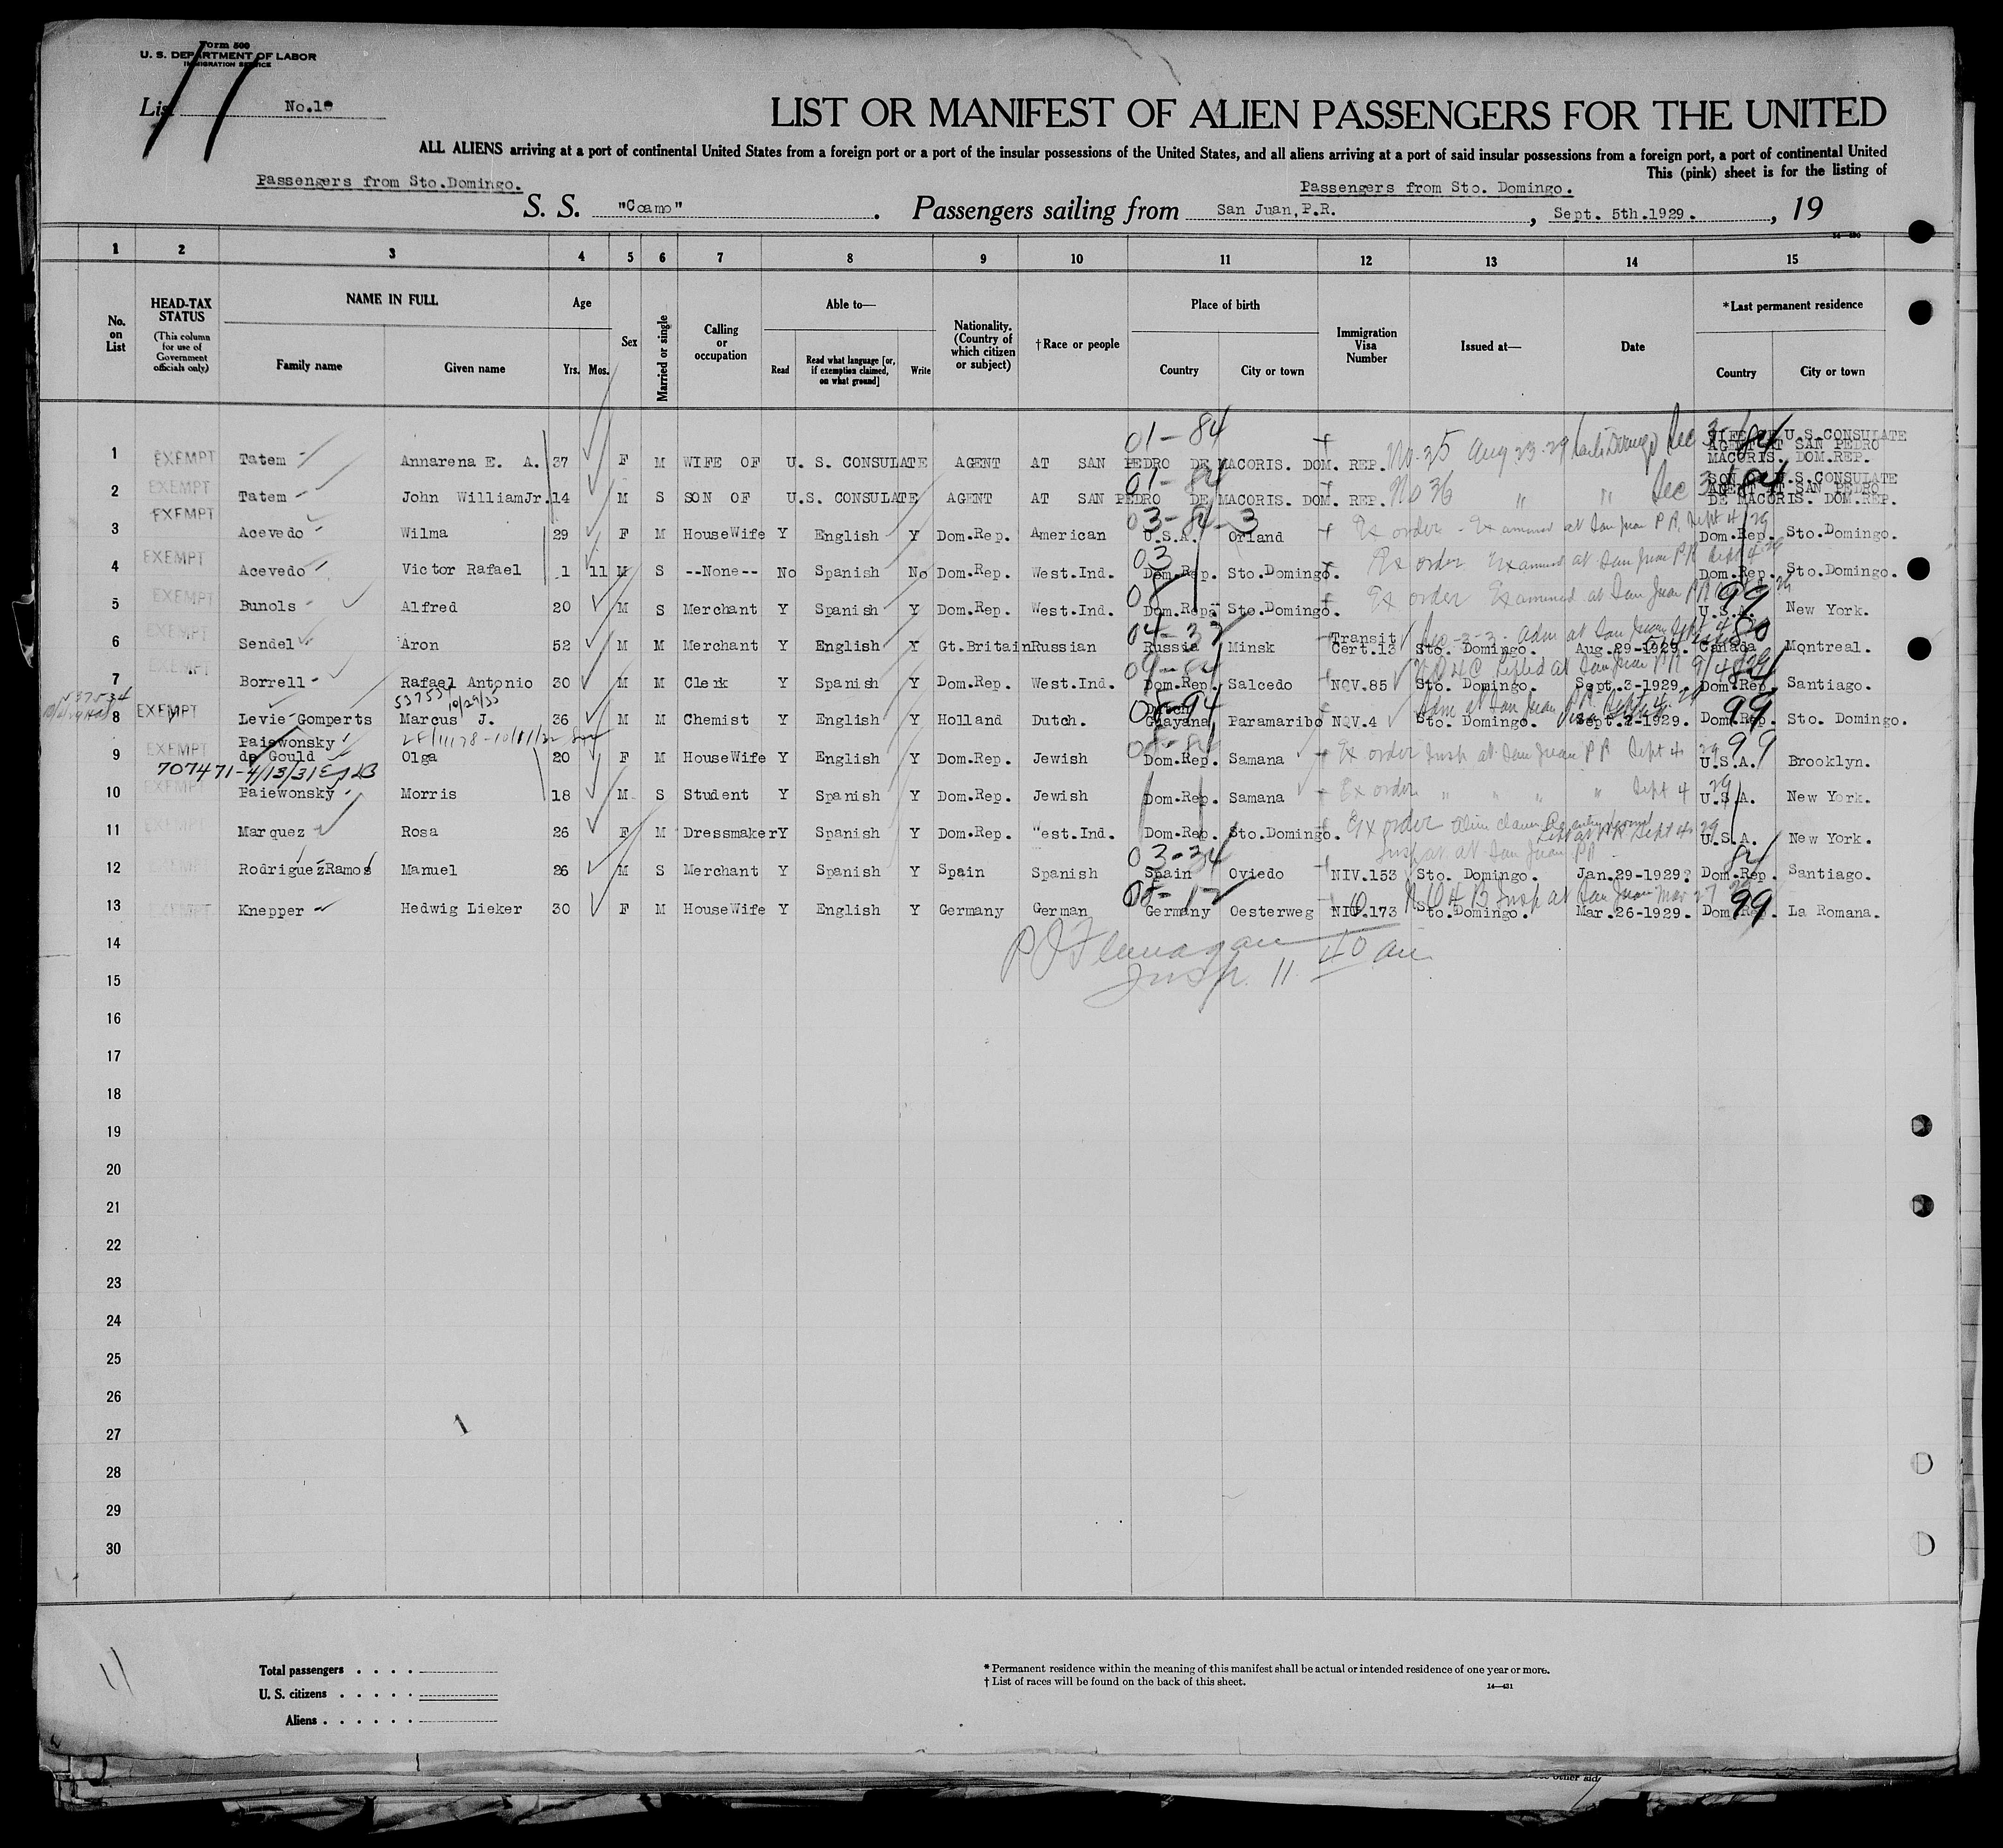 Form 500
U. S. DEPARTMENT OF LABOR
IMMIGRATION SERVICE
11
List No.1
LIST OR MANIFEST OF ALIEN PASSENGERS FOR THE UNITED
ALL ALIENS arriving at a port of continental United States from a foreign port or a port of the insular possessions of the United States, and all aliens arriving at a port of said insular possessions from a foreign port, a port of continental United
This (pink) sheet is for the listing of
Passengers from Sto.Domingo. Passengers from Sto. Domingo.
S. S. "Coamo". Passengers sailing from San Juan,P.R. , Sept. 5th.1929. , 19
1 2 3 4 5 6 7 8 9 10 11 12 13 14 15
No. on List
HEAD-TAX STATUS (This column for use of Government officials only)
NAME IN FULL Family name Given name
Age Yrs. Mos.
Sex
Married or single
Calling or occupation
Able to— Read Read what language [or, if exemption claimed, on what ground] Write
Nationality. (Country of which citizen or subject)
†Race or people
Place of birth Country City or town
Immigration Visa Number
Issued at—
Date
*Last permanent residence Country City or town
01-84
1 EXEMPT Tatem Annarena E. A. 37 F M WIFE OF U. S. CONSULATE AGENT AT SAN PEDRO DE MACORIS. DOM. REP. No. 35 Aug 23-29 Santo Domingo Sec 3-1 84 WIFE OF U.S.CONSULATE AGENT AT SAN PEDRO MACORIS. DOM.REP.
01-84
2 EXEMPT Tatem John William Jr. 14 M S SON OF U.S. CONSULATE AGENT AT SAN PEDRO DE MACORIS. DOM. REP. No 36 " " Sec 3-1 84 SON OF U.S.CONSULATE AGENT AT SAN PEDRO DE MACORIS. DOM.REP.
03-84-3
3 EXEMPT Acevedo Wilma 29 F M HouseWife Y English Y Dom.Rep. American U.S.A. Orland Ex order - Examined at San Juan P R Sept 4/29 Dom.Rep. Sto.Domingo.
03
4 EXEMPT Acevedo Victor Rafael 1 11 M S --None-- No Spanish No Dom.Rep. West.Ind. Dom.Rep. Sto.Domingo. Ex order Examined at San Juan P R Sept 4-29 Dom.Rep. Sto.Domingo.
08
5 EXEMPT Bunols Alfred 20 M S Merchant Y Spanish Y Dom.Rep. West.Ind. Dom.Rep. Sto.Domingo. Ex order Examined at San Juan P R 99 U.S.A. New York.
04-37
6 EXEMPT Sendel Aron 52 M M Merchant Y English Y Gt.Britain Russian Russia Minsk Transit Cert.13 Sec-3-3- Adm at San Juan Sept 4 Sto. Domingo. Aug.29-1929. 80 Canada Montreal.
7 EXEMPT Borrell Rafael Antonio 30 M M Clerk Y Spanish Y Dom.Rep. West.Ind. Dom.Rep. Salcedo NQV.85 at San Juan P R 9/4 Sto. Domingo. Sept.3-1929. Dom.Rep. Santiago.
537534 537534 10/29/35
8 EXEMPT Levie-Gomperts Marcus J. 36 M M Chemist Y English Y Holland Dutch. Dutch Guayana Paramaribo NQV.4 Adm at San Juan P R Sept 4 Sto. Domingo. Sept.2-1929. 99 Dom.Rep. Sto. Domingo.
9 EXEMPT Paiewonsky de Gould Olga 20 F M HouseWife Y English Y Dom.Rep. Jewish Dom.Rep. Samana Ex order Insp at San Juan P R Sept 4 29 99 U.S.A. Brooklyn.
707471-4/13/31
10 EXEMPT Paiewonsky Morris 18 M S Student Y Spanish Y Dom.Rep. Jewish Dom.Rep. Samana Ex order " " " " Sept 4 29 U.S.A. New York.
11 EXEMPT Marquez Rosa 26 F M Dressmaker Y Spanish Y Dom.Rep. "est.Ind. Dom.Rep. Sto.Domingo. Ex order Alien claims Re entry permit Sept 4 29 U.S.A. New York.
Insp at San Juan P R
03-34
12 EXEMPT Rodriguez Ramos Manuel 26 M S Merchant Y Spanish Y Spain Spanish Spain Oviedo NIV.153 Sto. Domingo. Jan.29-1929? 84 Dom.Rep. Santiago.
08-12
13 EXEMPT Knepper Hedwig Lieker 30 F M HouseWife Y English Y Germany German Germany Oesterweg 173 Insp at San Juan Mar 27 Sto.Domingo. Mar.26-1929. 99 Dom.Rep. La Romana.
14 P J Flannagan
15 Insp. 11 40 am
16
17
18
19
20
21
22
23
24
25
26
27
28
29
30
11
Total passengers . . . .
U. S. citizens . . . . .
Aliens . . . . . .
* Permanent residence within the meaning of this manifest shall be actual or intended residence of one year or more.
† List of races will be found on the back of this sheet.
14—431